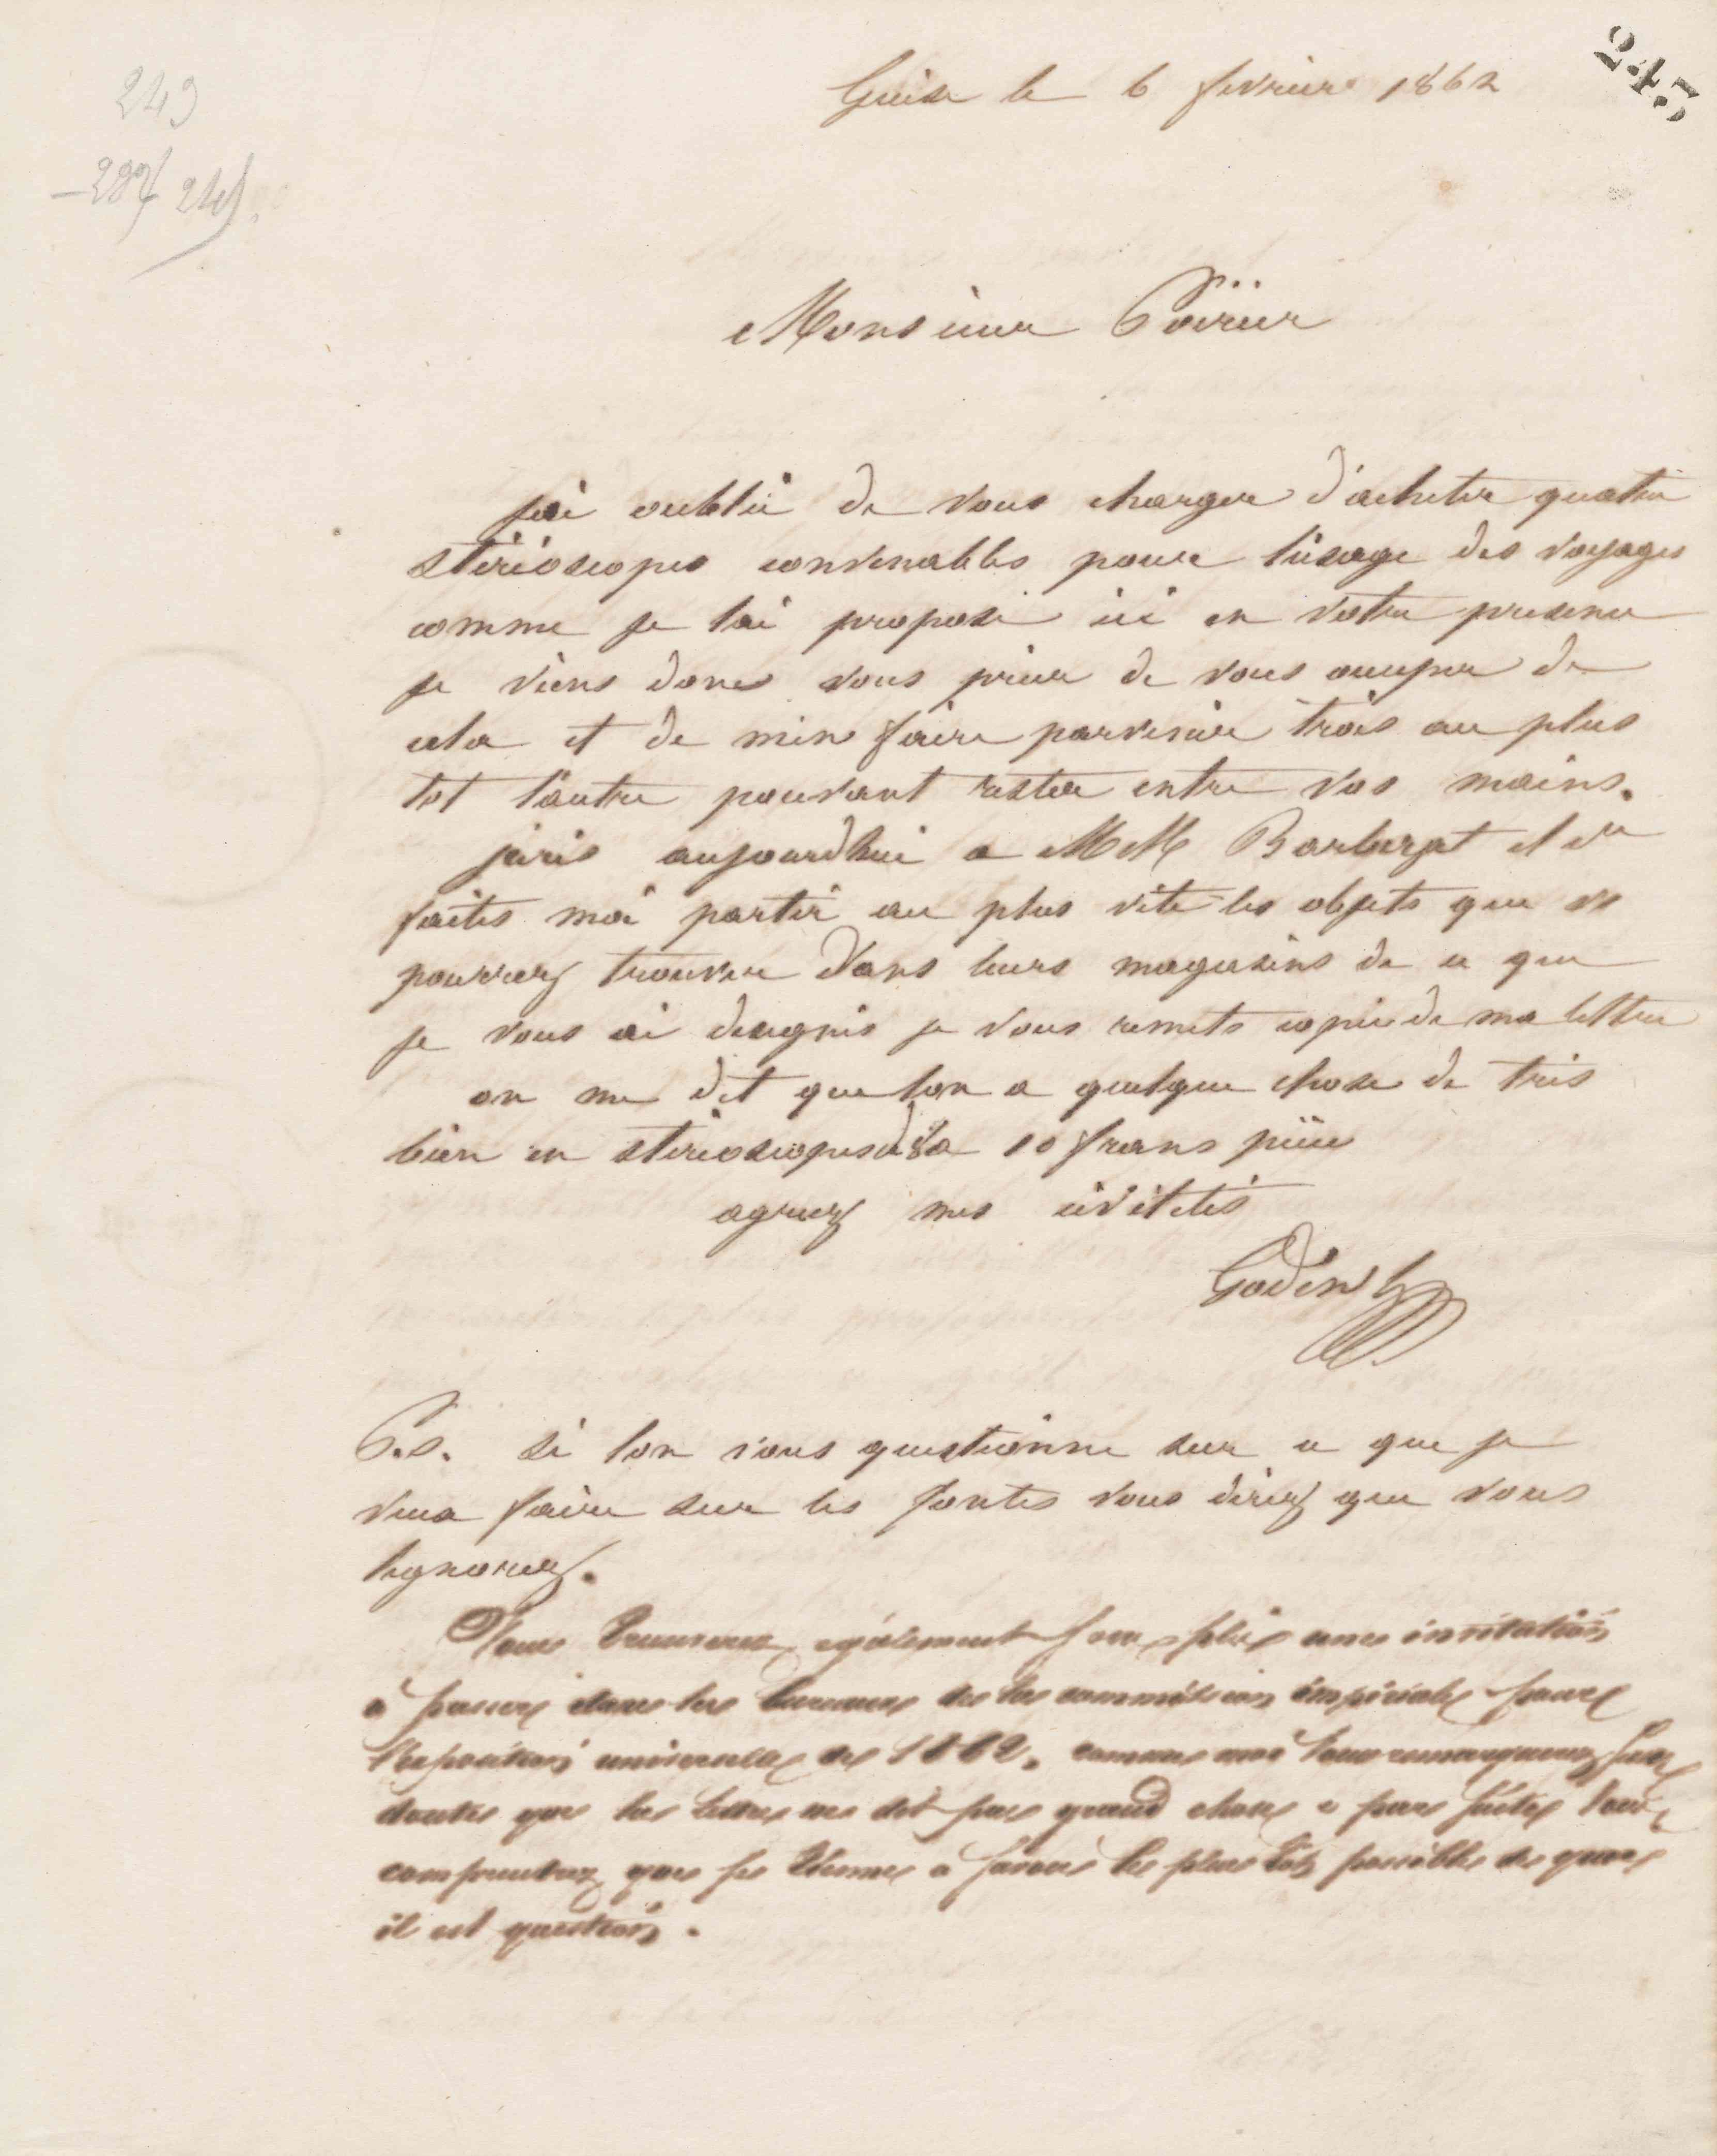 245
249
287 245
Guise le 6 fevrier 1862
Monsieur Poirier
jai oublié de vous charger d'acheter quatre
stéréoscopes convenables pour lusage des voyages
comme je lai proposé ici en votre presence
je viens donc vous prier de vous occuper de
cela et de men faire parvenir trois au plus
tot lautre pouvant rester entre vos mains.
jecris aujourdhui a MM Barbezat et Cie
faites moi partir au plus vite les objets que vs
pourrez trouver dans leurs magasins de ce que
je vous ai designés je vous remets copie de ma lettre
on me dit que lon a quelque chose de tres
bien en stereoscopes de 8 a 10 frans piece
agreez mes civilités
Godin
P.S. si lon vous questionne sur ce que je
veux faire sur les fontes vous direz que vous
lignorez.
Vous trouverez également sous plis une invitation
à passer dans les bureaux de la commission impériale pour
l'exposition universelle de 1862. comme moi vous remarquerez sans
doute que la lettre ne dit pas grand chose a part vous
comprendrez que je tienne à savoir le plus tôt possible de quoi
il est question.